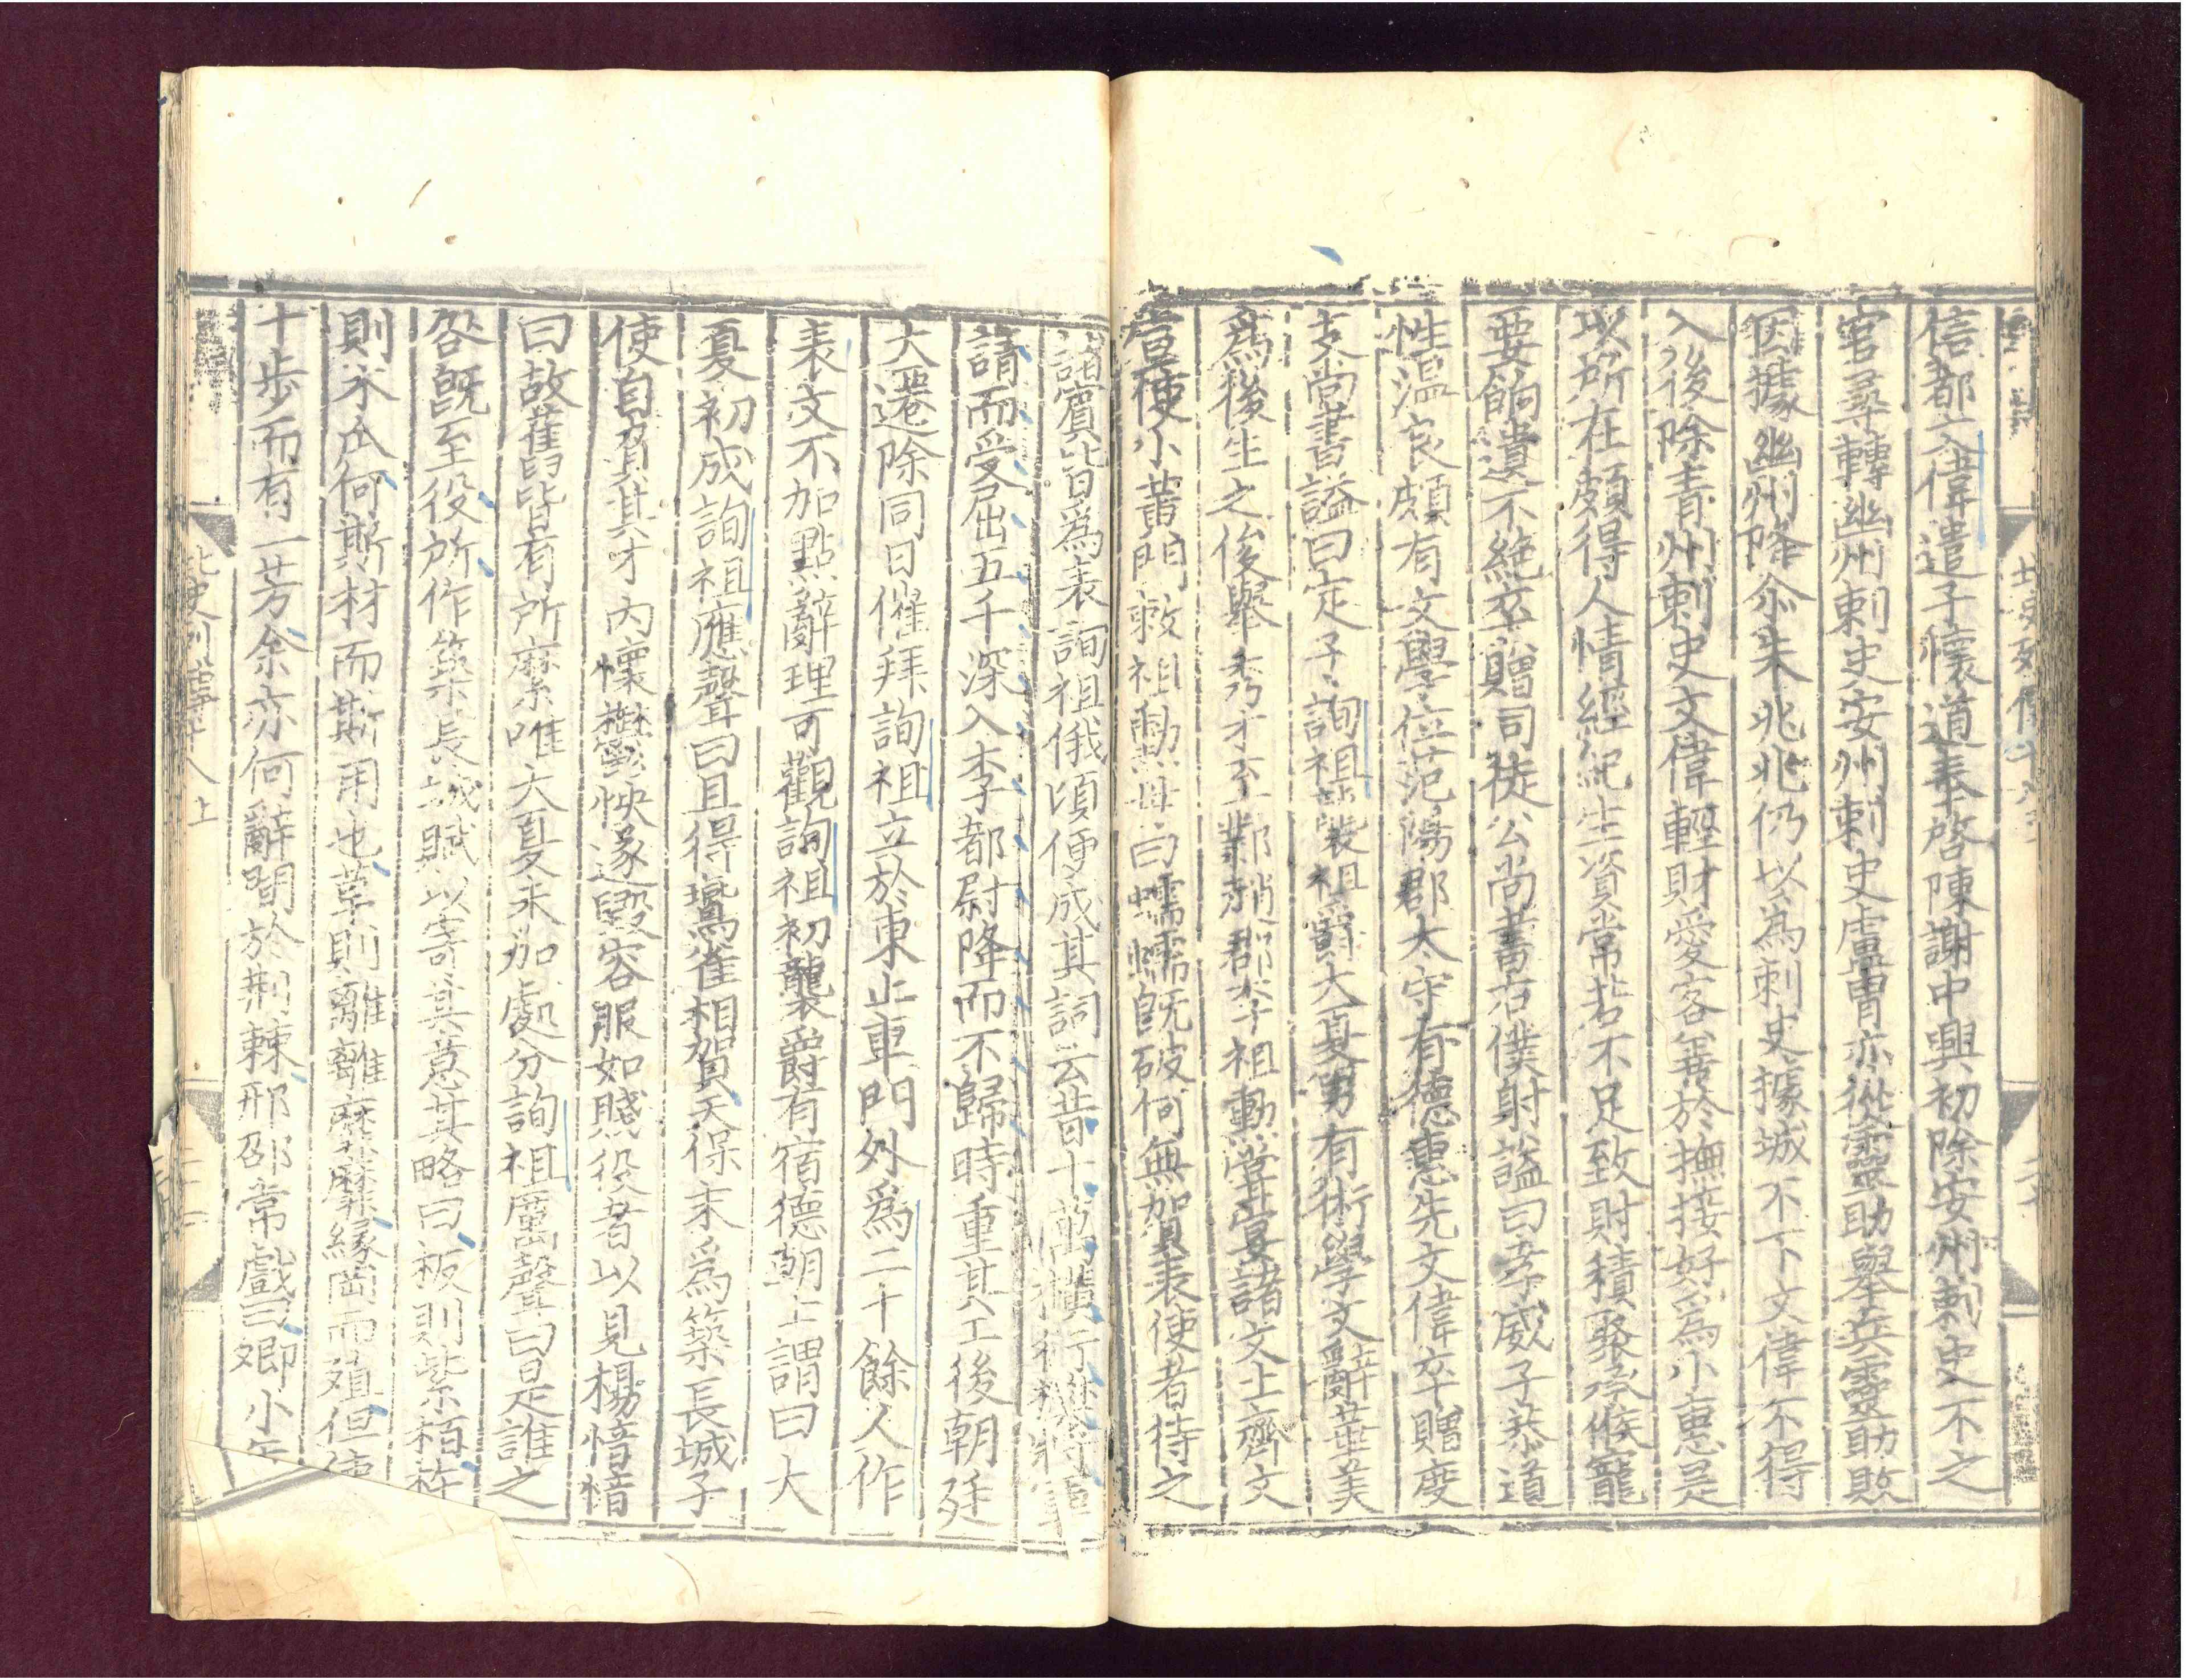 信都文偉遣子懷道奉啓陳謝中興初除安州刺史不之
官尋轉幽州刺史安州刺史盧曹亦從靈助舉兵靈助敗
因據幽州降尒朱兆兆仍以爲刺史據城不下文偉不得
入後除青州刺史文偉輕財愛客善於撫接好爲小惠是
以所在頗得人情經紀生資常若不足致財積聚承候寵
要餉遺不絶卒贈司徒公尚書右僕射謚曰孝威子恭道
性温良頗有文學位范陽郡太守有德惠先文偉卒贈度
支尚書謚曰定子詢祖襲祖爵大夏男有術學文辭華美
爲後生之俊舉秀才至鄴趙郡李祖勳嘗宴諸文士齊文
宣使小黄門敕祖勳母曰蠕蠕旣破何無賀表使者待之
諸賓皆爲表詢祖俄頃便成其詞云昔十萬橫行樊將軍
請而受屈五千深入李都尉降而不歸時重其工後朝廷
大遷除同日催拜詢祖立於東止車門外爲二十餘人作
表文不加點辭理可觀詢祖初襲爵有宿德朝士謂曰大
夏初成詢祖應聲曰且得鷰雀相賀天保末爲築長城子
使自負其才内懷鬱怏遂毁容服如賤役者以見楊愔愔
曰故舊皆有所縻唯大夏未加處分詢祖厲聲曰是誰之
咎旣至役所作築長城賦以寄其意其略曰板則紫栢杵
則木瓜何斯材而斯用也草則離離靡靡緣岡而殖但使
十步而有一芳余亦何辭間於荆棘邢邵常戲曰卿小年
北史列傳十八上